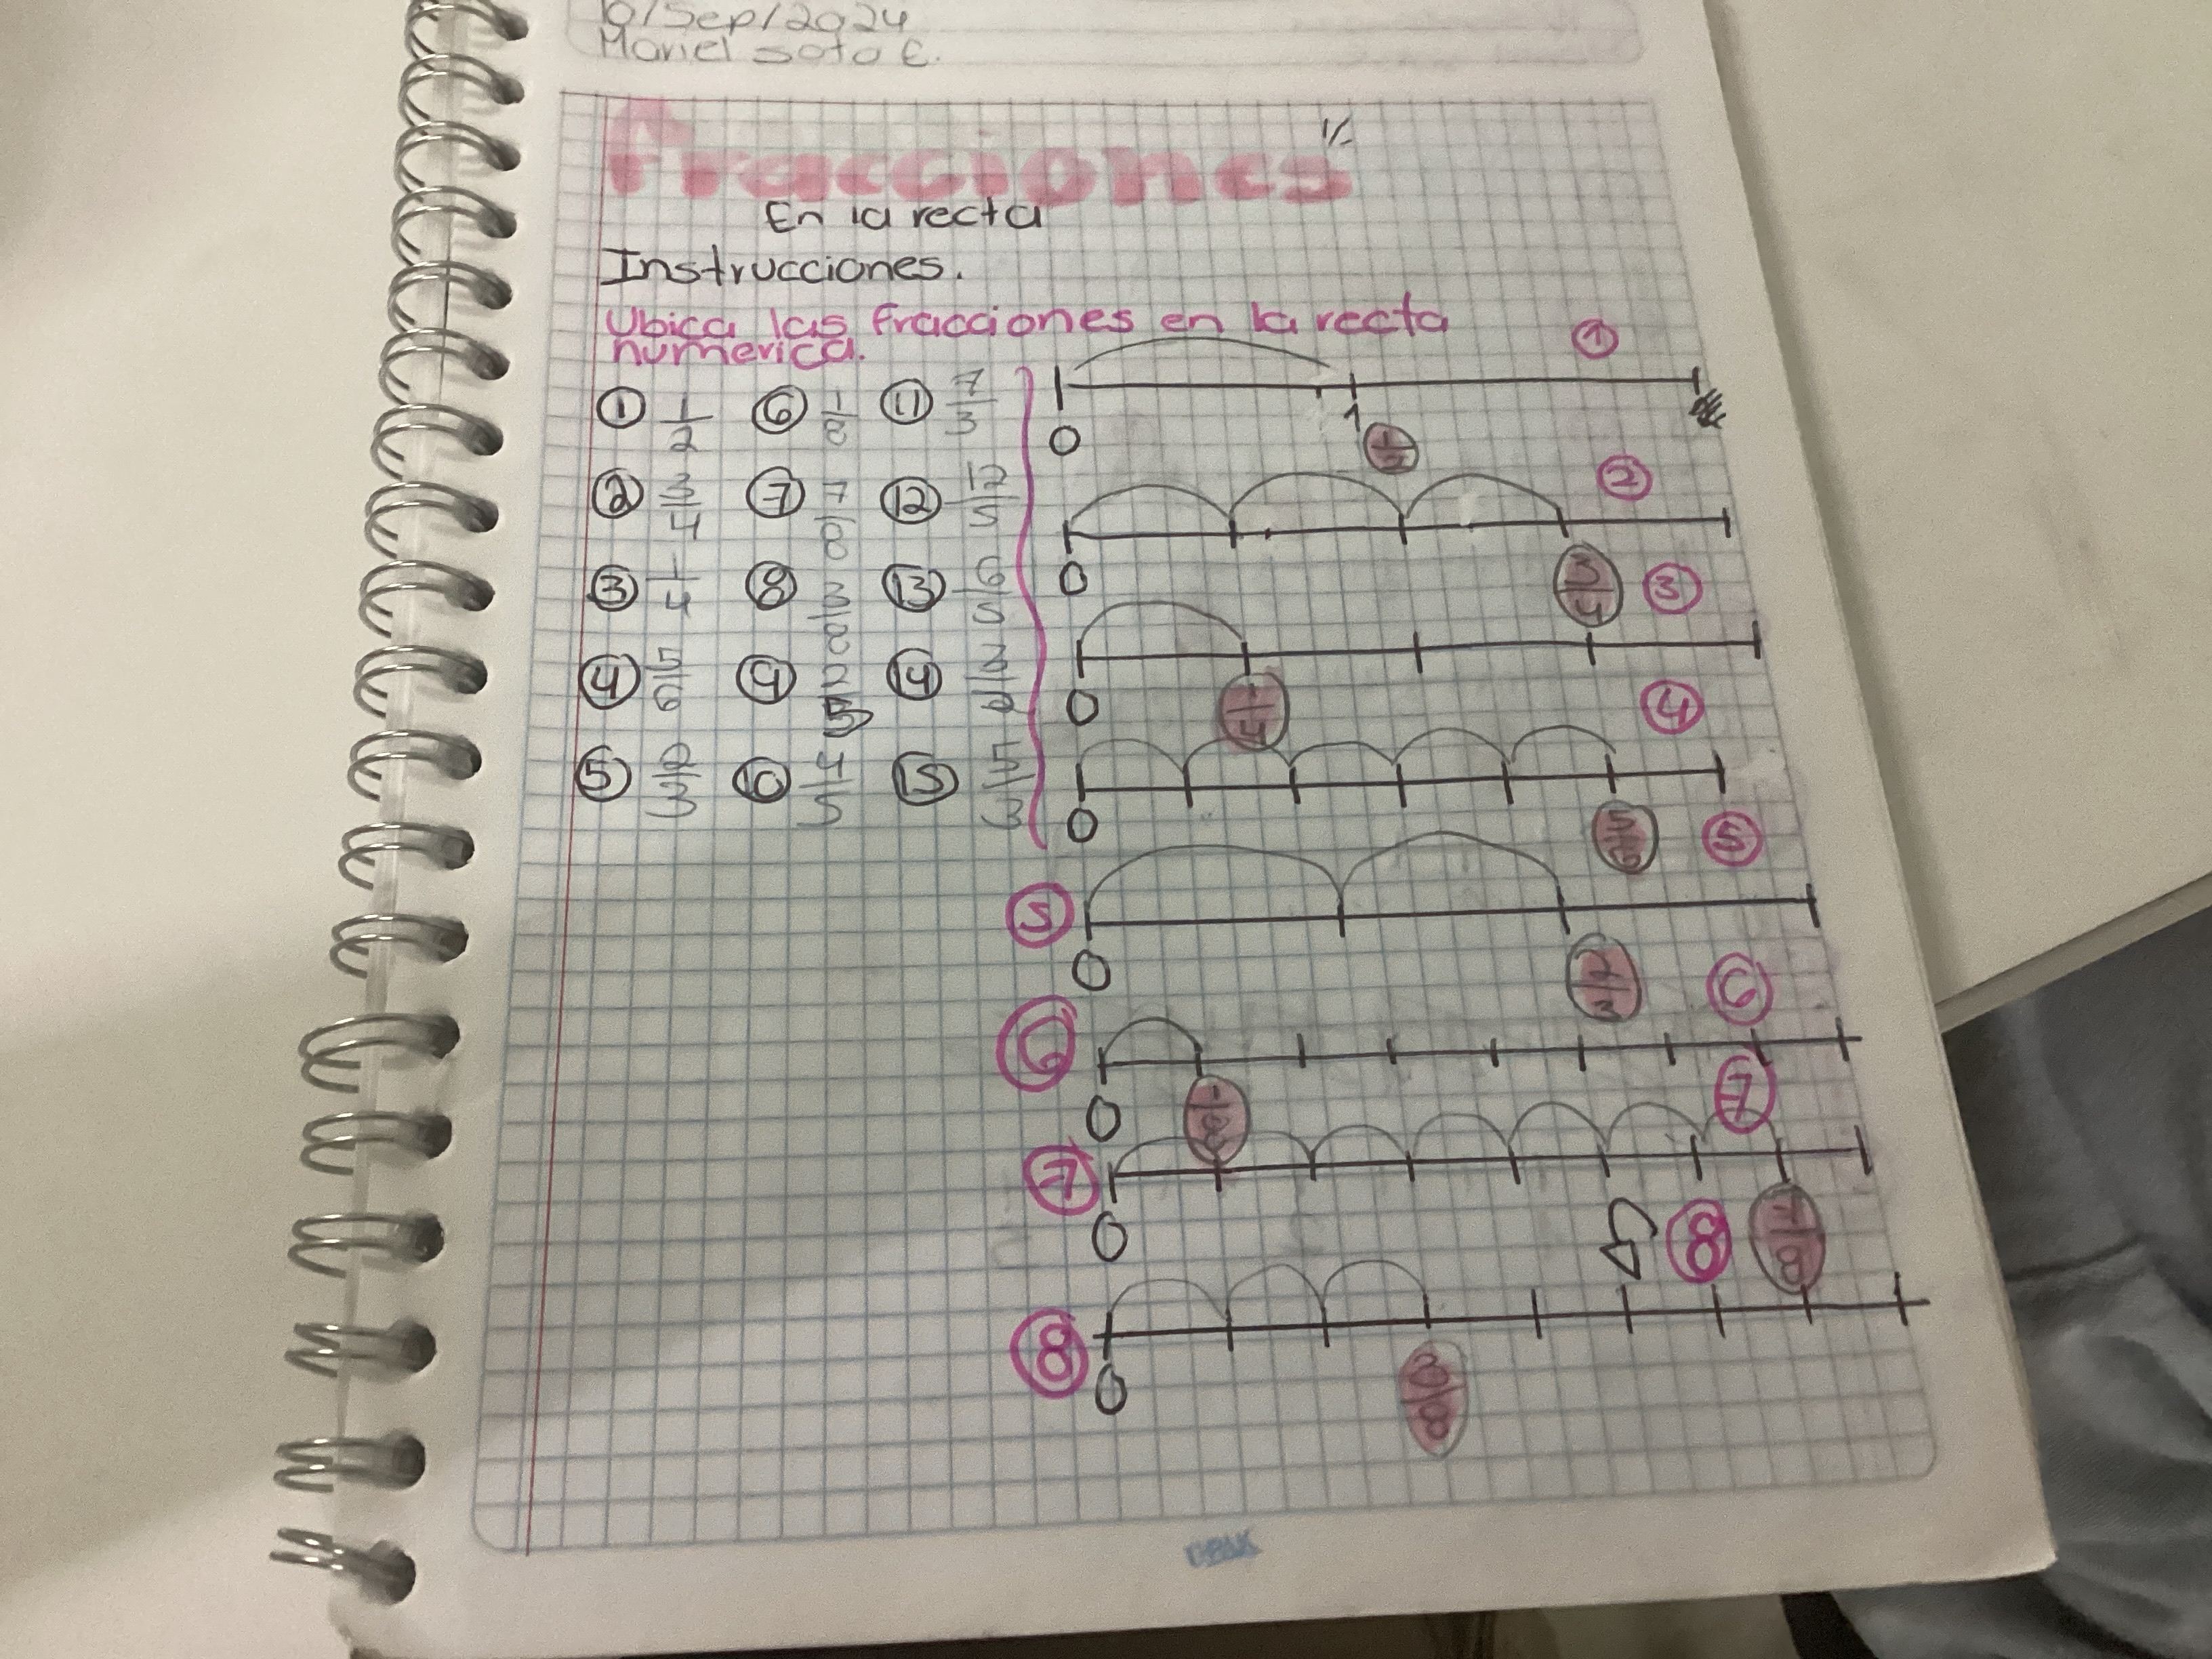 10/Sep/2024
Mariel Soto E.
Fracciones
En la recta
Instrucciones.
Ubica las fracciones en la recta
numerica.
① 1/2 ⑥ 1/8 ⑪ 7/3
② 3/4 ⑦ 7/8 ⑫ 12/5
③ 1/4 ⑧ 3/8 ⑬ 6/5
④ 5/6 ⑨ 2/5 ⑭ 3/2
⑤ 2/3 ⑩ 4/5 ⑮ 5/3
①
0 1 1/2
②
0 3/4
③
0 1/4
④
0 5/6
⑤
⑤
0 2/3
⑥
⑥
0 1/8
⑦
⑦
0 7/8
⑧
⑧
0 3/8